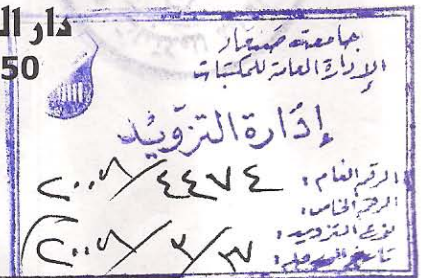 دار
50
جامعة صنعاء
الإدارة العامة للمكتبات
إدارة التزويد
الرقم العام : ٤٤٧٤ / ٢٠٠٨
الرقم الخاص :
نوع التزويد :
تاريخ